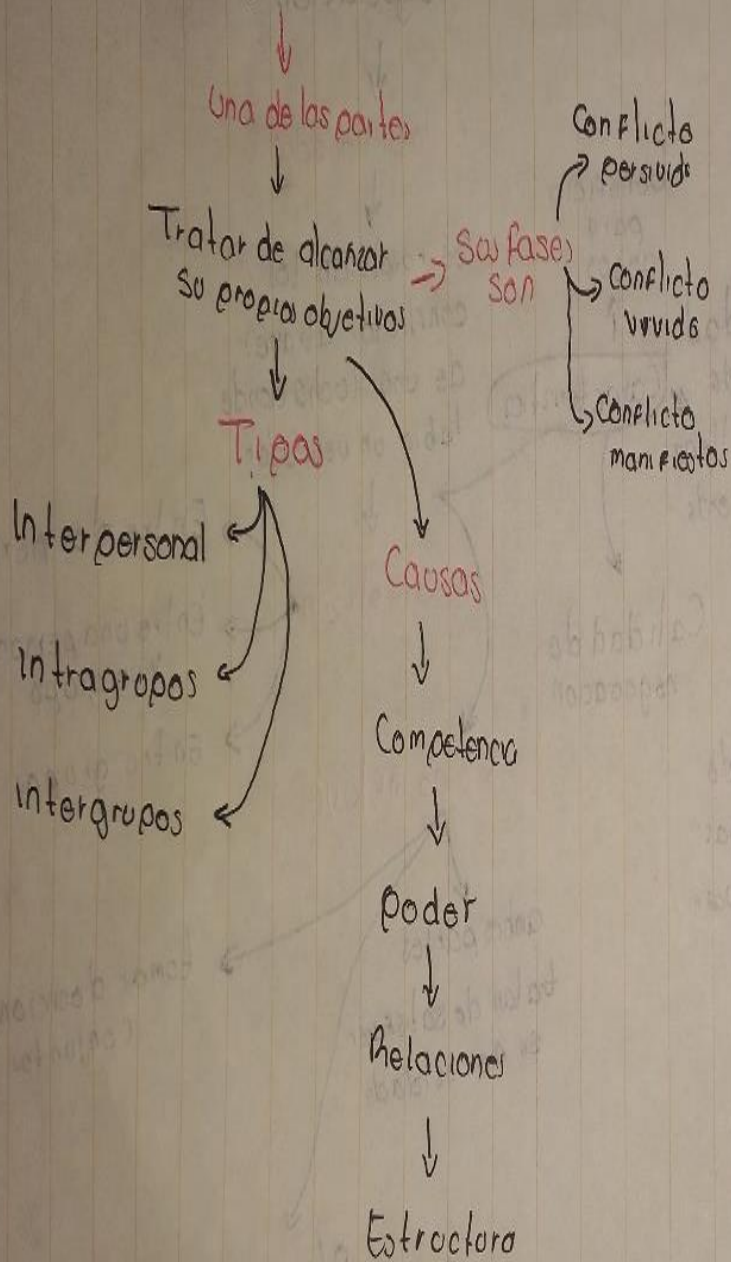 Una de las partes
Tratar de alcanzar
su propios objetivos
Sus fases
son
Conflicto
persivido
Conflicto
vivido
Conflicto
manifiestos
Tipos
Interpersonal
Intragrupos
intergrupos
Causas
Competencia
poder
Relaciones
Estructura
Calidad de
negociacion